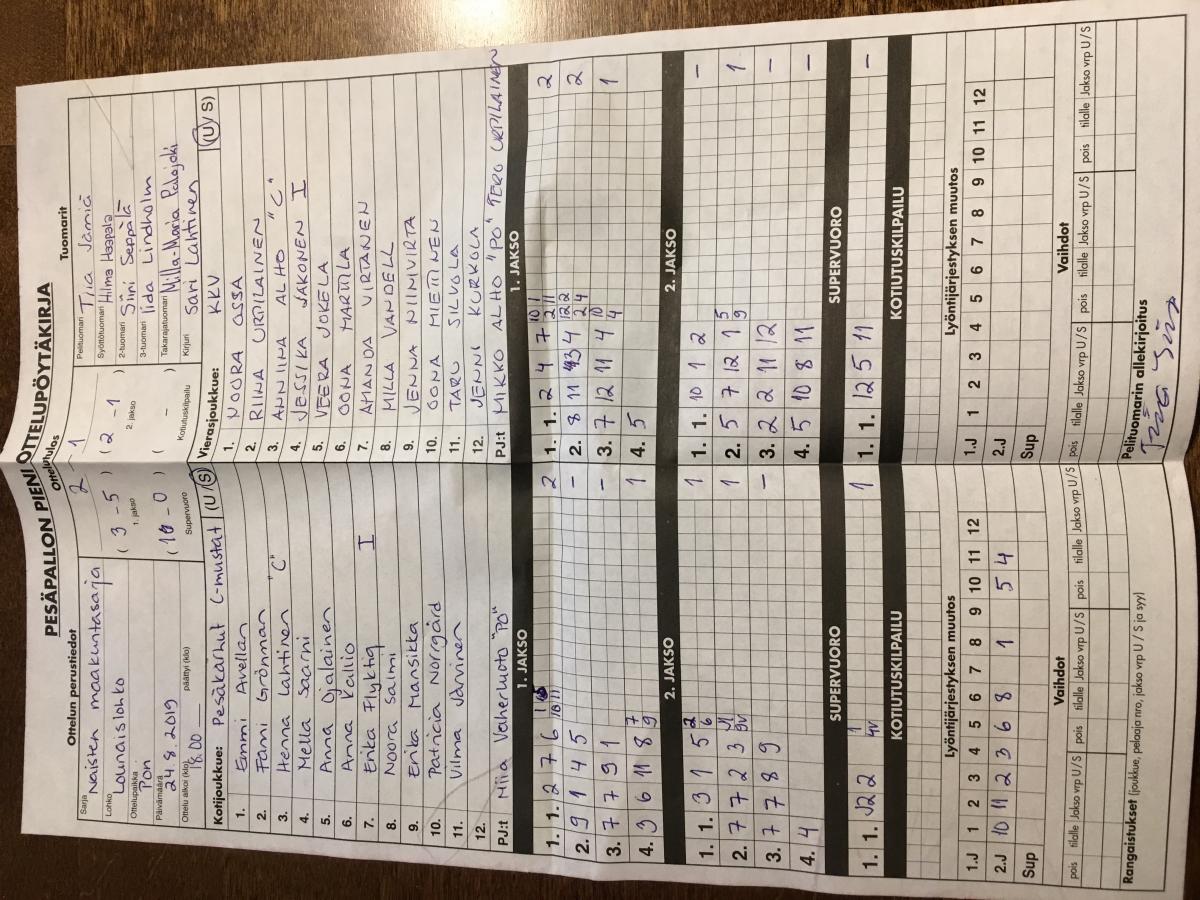 PESÄPALLON PIENI OTTELUPÖYTÄKIRJA
Ottelun perustiedot
Sarja
Naisten maakuntasarja
Lohko
Lounaislohko
Ottelupaikka
Pori
Päivämäärä
24.8.2019
Ottelu alkoi (klo) 18.00 päättyi (klo)
Ottelutulos
2 - 1
( 3 - 5 ) ( 2 - 1 )
1. jakso 2. jakso
( 1 - 0 ) ( - )
Supervuoro Kotiutuskilpailu
Tuomarit
Pelituomari Tiia Jämiä
Syöttötuomari Hilma Haapala
2-tuomari Siini Seppälä
3-tuomari Iida Lindholm
Takarajatuomari Milla-Maria Palojoki
Kirjuri Sari Lahtinen
Kotijoukkue: Pesäkarhut C-mustat (U / S)
1. Emmi Avellan
2. Fanni Grönman
3. Henna Lahtinen "C"
4. Mella Saarni
5. Anna Ojalainen
6. Anna Kallio
7. Erika Flyktig I
8. Noora Salmi
9. Erika Mansikka
10. Patricia Norrgård
11. Vilma Järvinen
12.
PJ:t Niia Vaherluoto "PO"
Vierasjoukkue: KKV (U / S)
1. NOORA OSSA
2. RIINA URPILAINEN
3. ANNIINA ALHO "C"
4. JESSIKA JAKONEN I
5. VEERA JOKELA
6. OONA MARTTILA
7. AMANDA VIRTANEN
8. MILLA VANDELL
9. JENNA NIINIVIRTA
10. OONA MIETTINEN
11. TARU SILVOLA
12. JENNI KURKOLA
PJ:t MIKKO ALHO "PO" TERO URPILAINEN
1. JAKSO
1. 1. 2 7 6 2
2. 9 1 4 5 -
3. 7 7 9 1 -
4. 3 6 11 8 7 9 1
2. JAKSO
1. 1. 3 1 5 2 6 1
2. 7 7 2 3 1
3. 7 7 8 9 -
4. 4
SUPERVUORO
1. 1. 1
KOTIUTUSKILPAILU
Lyöntijärjestyksen muutos
1.J 1 2 3 4 5 6 7 8 9 10 11 12
2.J 10 11 2 3 6 8 1 5 4
Sup
Vaihdot
pois tilalle Jakso vrp U / S pois tilalle Jakso vrp U / S pois tilalle Jakso vrp U / S
Rangaistukset (joukkue, pelaaja nro, jakso vrp U / S ja syy)
1. JAKSO
1. 1. 2 4 7 10 1 2 11 2
2. 8 11 4 12 2 2 4 2
3. 7 12 11 4 10 4 1
4. 5
2. JAKSO
1. 1. 10 1 2 -
2. 5 7 12 1 5 9 1
3. 2 2 11 12 -
4. 5 10 8 11 -
SUPERVUORO
1. 1. 12 5 11 -
KOTIUTUSKILPAILU
Lyöntijärjestyksen muutos
1.J 1 2 3 4 5 6 7 8 9 10 11 12
2.J
Sup
Vaihdot
pois tilalle Jakso vrp U / S pois tilalle Jakso vrp U / S pois tilalle Jakso vrp U / S
Pelituomarin allekirjoitus